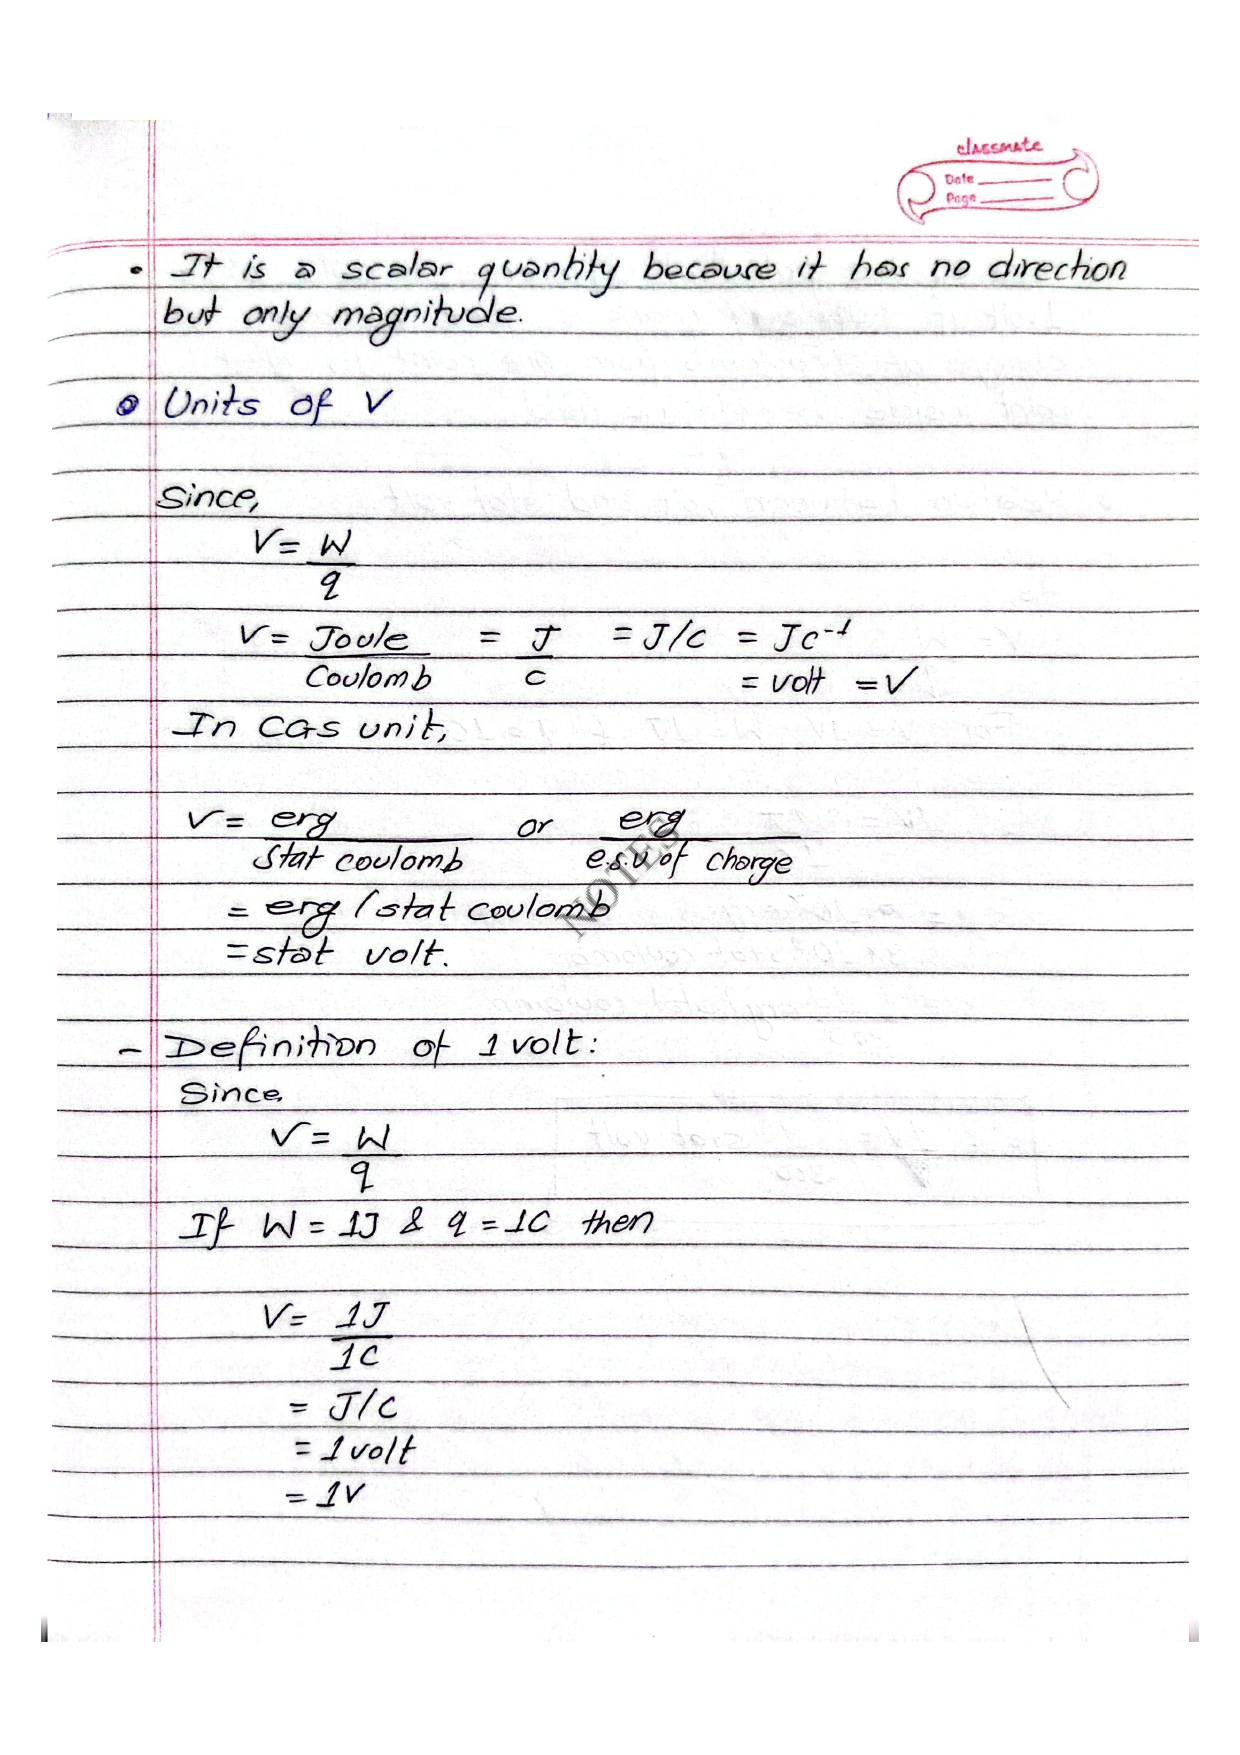 classmate
Date
Page
• It is a scalar quantity because it has no direction
but only magnitude.
Units of V
Since,
V = W
q
V = Joule = J = J/C = JC⁻¹
Coulomb C = volt = V
In CGS unit,
V = erg or erg
Stat coulomb e.s.u of charge
= erg / stat coulomb
= stat volt.
NOTES
- Definition of 1 volt:
Since,
V = W
q
If W = 1J & q = 1C then
V = 1J
1C
= J/C
= 1 volt
= 1V